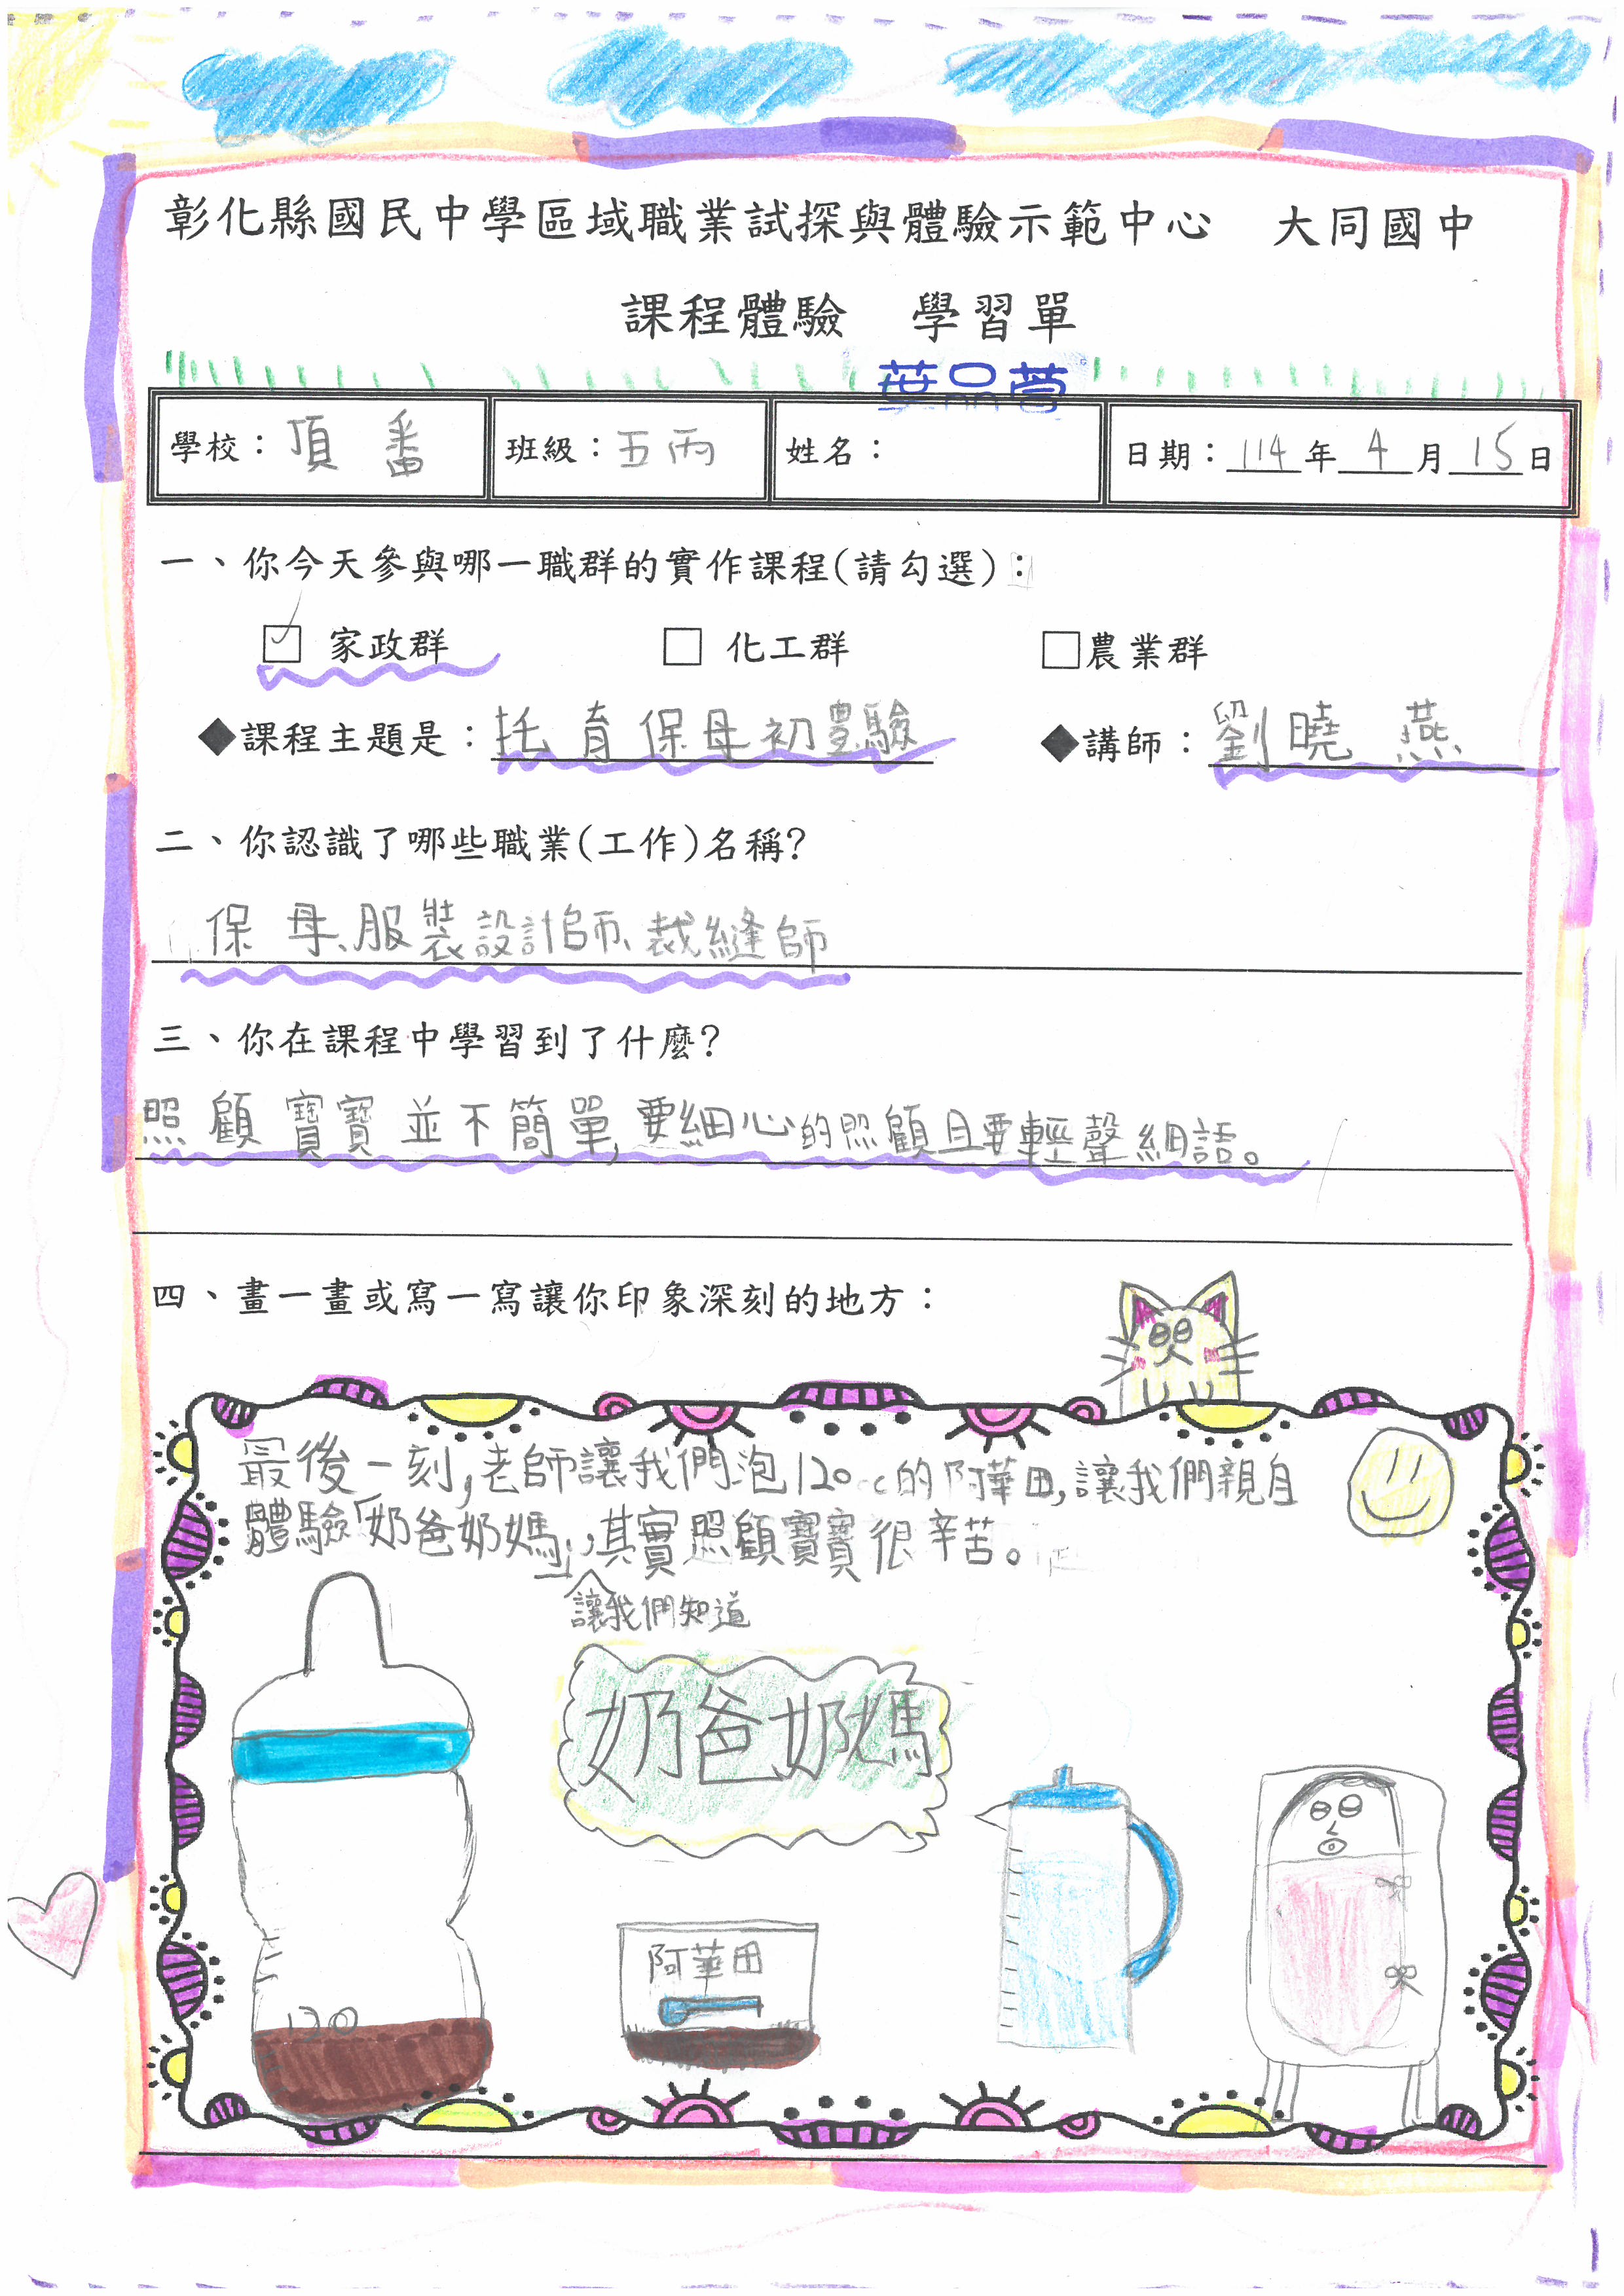 彰化縣國民中學區域職業試探與體驗示範中心　大同國中
課程體驗　學習單
葉品萱
學校：頂番　班級：五丙　姓名：　日期：114年4月15日
一、你今天參與哪一職群的實作課程(請勾選)：
☑ 家政群　□ 化工群　□農業群
◆課程主題是：托育保母初體驗　◆講師：劉曉燕
二、你認識了哪些職業(工作)名稱?
保母、服裝設計師、裁縫師
三、你在課程中學習到了什麼?
照顧寶寶並不簡單,要細心的照顧且要輕聲細語。
四、畫一畫或寫一寫讓你印象深刻的地方：
最後一刻,老師讓我們泡120cc的阿華田,讓我們親自
體驗「奶爸奶媽」,其實照顧寶寶很辛苦。
讓我們知道
奶爸奶媽
阿華田
120